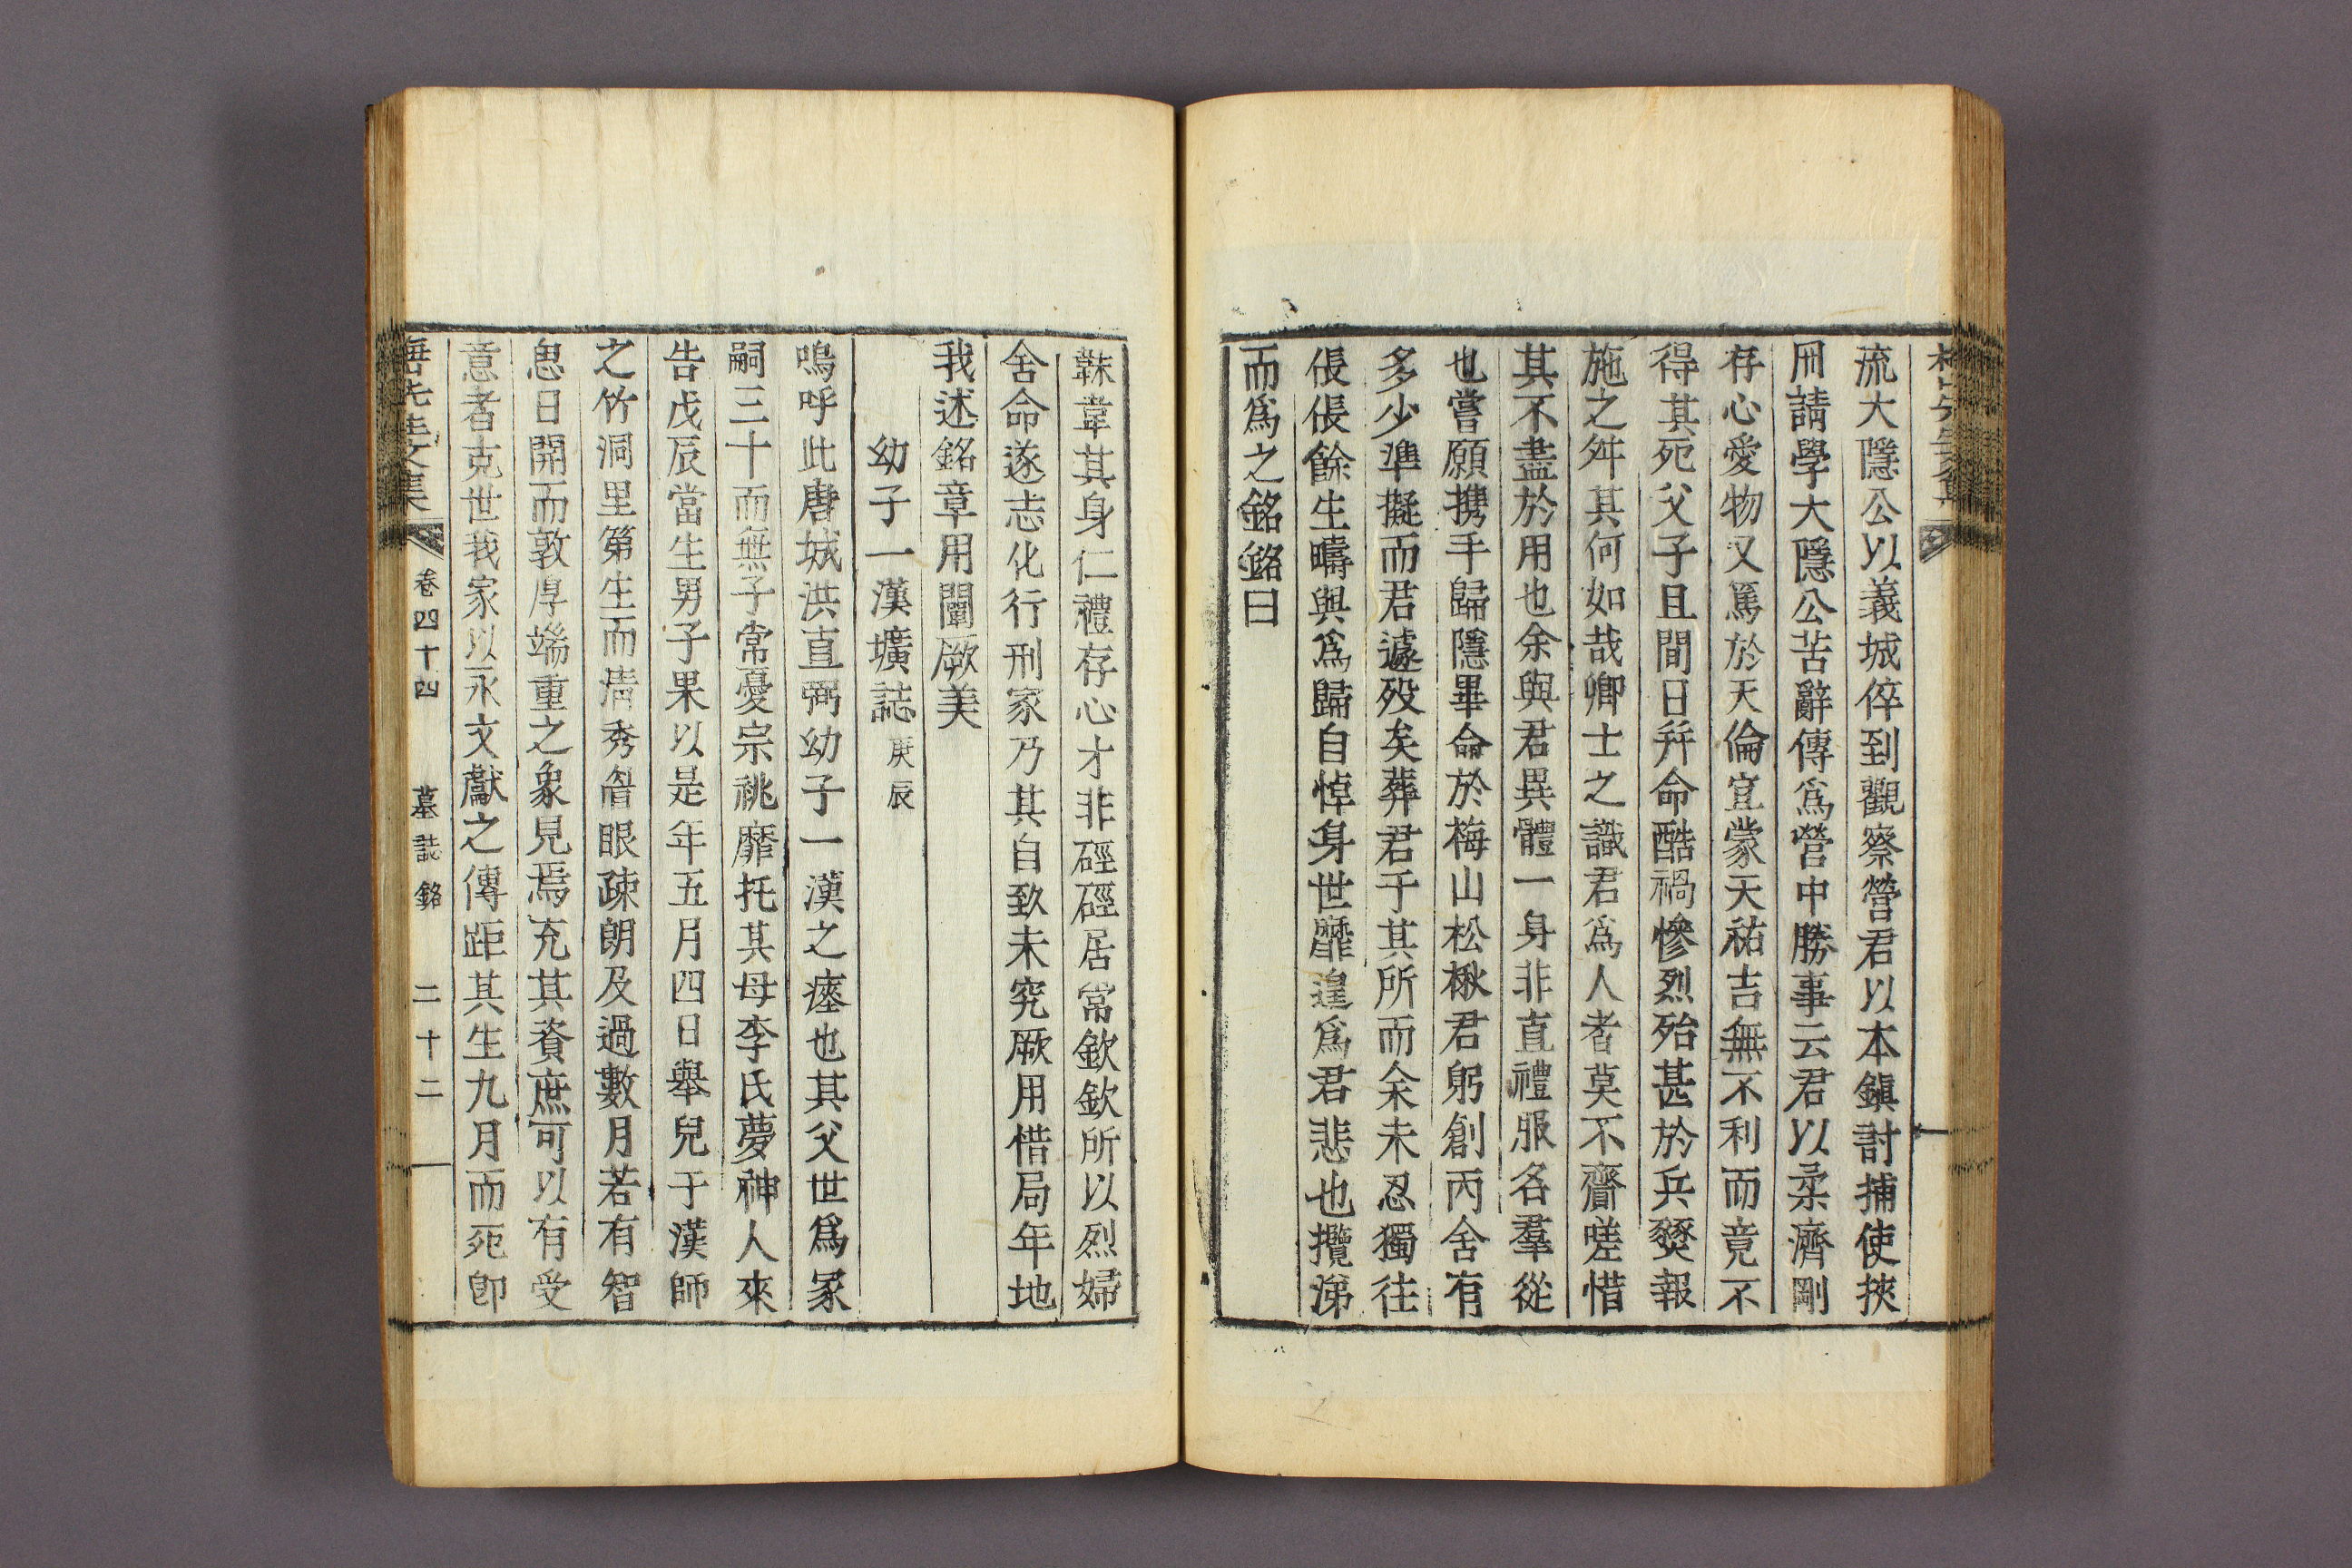 流大隱公以義城倅到觀察營君以本鎭討捕使挾
冊請學大隱公苦辭傳爲營中勝事云君以柔濟剛
存心愛物又篤於天倫宜蒙天祐吉無不利而竟不
得其死父子且間日幷命酷禍慘烈殆甚於兵燹報
施之舛其何如哉卿士之識君爲人者莫不齎嗟惜
其不盡於用也余與君異體一身非直禮服各羣從
也嘗願携手歸隱畢命於梅山松楸君躬創丙舍有
多少準擬而君遽歿矣葬君于其所而余未忍獨往
倀倀餘生疇與爲歸自悼身世靡遑爲君悲也攬涕
而爲之銘銘曰
韎韋其身仁禮存心才非硜硜居常欽欽所以烈婦
舍命遂志化行刑家乃其自致未究厥用惜局年地
我述銘章用闡厥美
幼子一漢壙誌 庚辰
嗚呼此唐城洪直弼幼子一漢之瘞也其父世爲冢
嗣三十而無子常憂宗祧靡托其母李氏夢神人來
告戊辰當生男子果以是年五月四日舉兒于漢師
之竹洞里第生而淸秀眉眼疎朗及過數月若有智
思日開而敦厚端重之象見焉充其資庶可以有受
意者克世我家以永文獻之傳距其生九月而死卽
卷四十四 墓誌銘 二十二